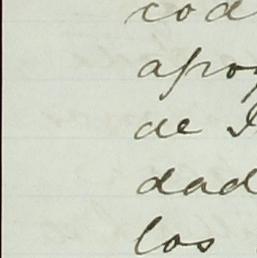 cod
apoy
de I
dad
los